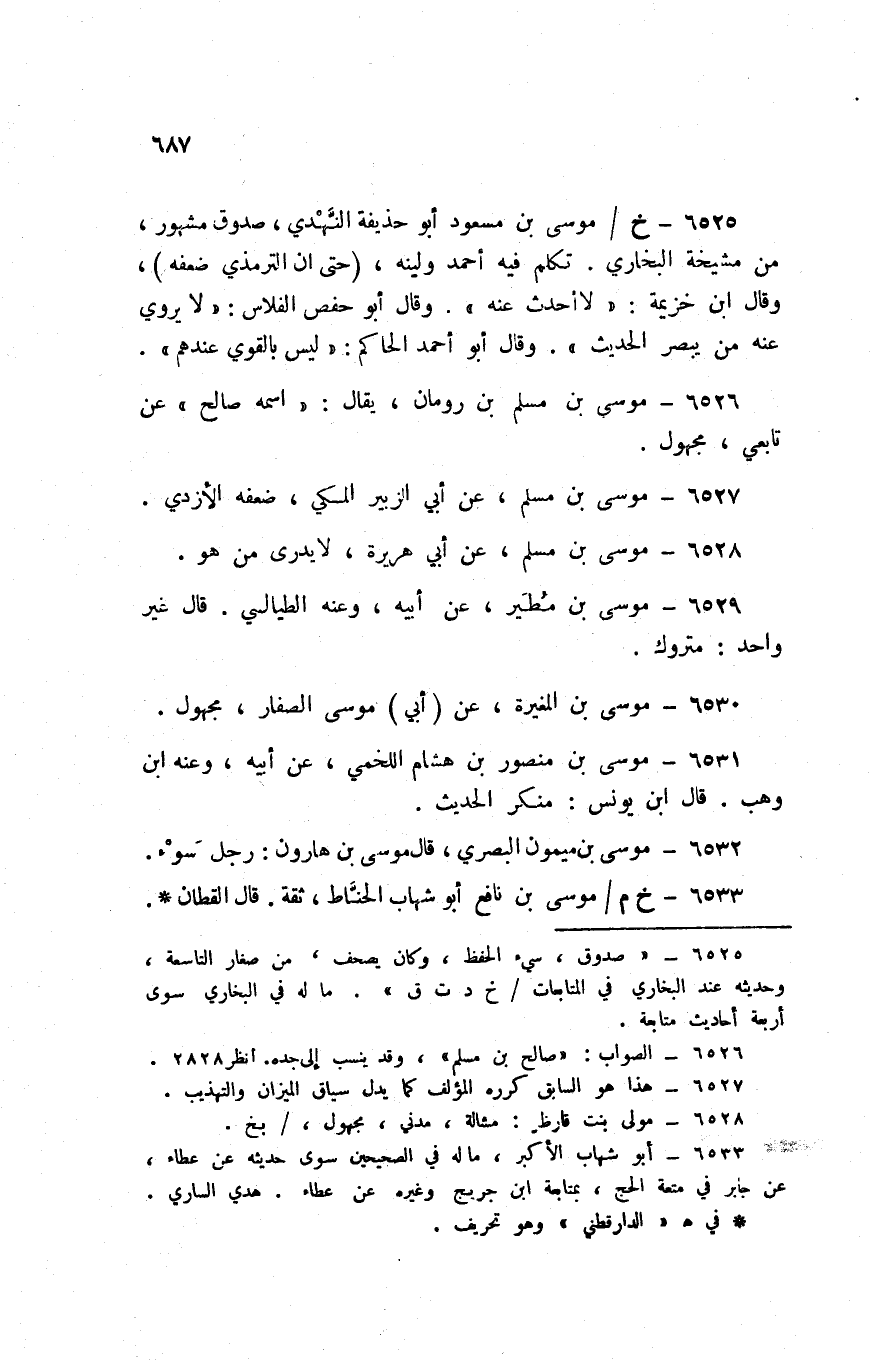 ٦٨٧
٦٥٢٥ – خ / موسى بن مسعود أبو حذيفة النَّهْدي ، صدوق مشهور ،
من مشيخة البخاري . تكلم فيه أحمد ولينه ، (حتى ان الترمذي ضعفه ) ،
وقال ابن خزيمة : « لاأحدث عنه » . وقال أبو حفص الفلاس : « لا يروي
عنه من يبصر الحديث » . وقال أبو أحمد الحاكم : « ليس بالقوي عندهم » .
٦٥٢٦ – موسى بن مسلم بن رومان ، يقال : « اسمه صالح » عن
تابعي ، مجهول .
٦٥٢٧ – موسى بن مسلم ، عن أبي الزبير المكي ، ضعفه الأزدي .
٦٥٢٨ – موسى بن مسلم ، عن أبي هريرة ، لايدرى من هو .
٦٥٢٩ – موسى بن مُطَير ، عن أبيه ، وعنه الطيالسي . قال غير
واحد : متروك .
٦٥٣٠ – موسى بن المغيرة ، عن ( أبي ) موسى الصفار ، مجهول .
٦٥٣١ – موسى بن منصور بن هشام اللخمي ، عن أبيه ، وعنه ابن
وهب . قال ابن يونس : منكر الحديث .
٦٥٣٢ – موسى بن ميمون البصري ، قال موسى بن هارون : رجل سَوْء .
٦٥٣٣ – خ م / موسى بن نافع أبو شهاب الحنَّاط ، ثقة . قال القطان * .
٦٥٢٥ – « صدوق ، سيء الحفظ ، وكان يصحف ، من صغار التاسعة ،
وحديثه عند البخاري في المتابعات / خ د ت ق » . ما له في البخاري سوى
أربعة أحاديث متابعة .
٦٥٢٦ – الصواب : «صالح بن مسلم» ، وقد ينسب إلى جده. انظر ٢٨٢٨ .
٦٥٢٧ – هذا هو السابق كرره المؤلف كما يدل سياق الميزان والتهذيب .
٦٥٢٨ – مولى بنت قارظ : مشالة ، مدني ، مجهول ، / بخ .
٦٥٣٣ – أبو شهاب الأكبر ، ماله في الصحيحين سوى حديثه عن عطاء ،
عن جابر في متعة الحج ، بمتابعة ابن جريج وغيره عن عطاء . هدي الساري .
* في ه « الدارقطني » وهو تحريف .